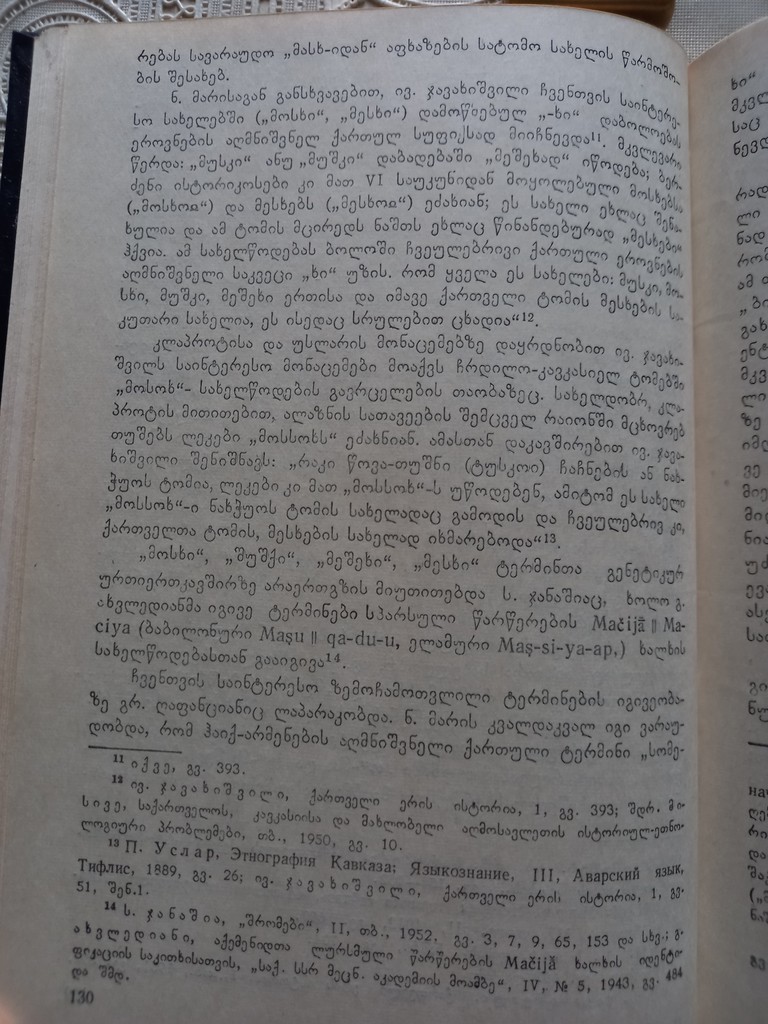 რებას სავარაუდო „მასხ-იდან“ აფხაზების სატომო სახელის წარმოშო-
ბის შესახებ.
ნ. მარისაგან განსხვავებით, ივ. ჯავახიშვილი ჩვენთვის საინტერე-
სო სახელებში („მოსხი“, „მესხი“) დამოწმებულ „-ხი“ დაბოლოებას
ეროვნების აღმნიშვნელ ქართულ სუფიქსად მიიჩნევდა¹¹. მკვლევარი
წერდა: „მუსკი“ ანუ „მუშკი“ დაბადებაში „მეშეხად“ იწოდება; ბერ-
ძენი ისტორიკოსები კი მათ VI საუკუნიდან მოყოლებული მოსხებსა
(„მოსხოჲ“) და მესხებს („მესხოჲ“) ეძახიან; ეს სახელი ეხლაც შენა-
ხულია და ამ ტომის მცირედს ნაშთს ეხლაც წინანდებურად „მესხები“
ჰქვია. ამ სახელწოდებას ბოლოში ჩვეულებრივი ქართული ეროვნების
აღმნიშვნელი საკვეცი „ხი“ უზის. რომ ყველა ეს სახელები: მუსკი, მო-
სხი, მუშკი, მეშეხი ერთისა და იმავე ქართველი ტომის მესხების სა-
კუთარი სახელია, ეს ისედაც სრულებით ცხადია“¹².
კლაპროტისა და უსლარის მონაცემებზე დაყრდნობით ივ. ჯავახი-
შვილს საინტერესო მონაცემები მოაქვს ჩრდილო-კავკასიელ ტომებში
„მოსოხ“- სახელწოდების გავრცელების თაობაზეც. სახელდობრ, კლა-
პროტის მითითებით, ალაზნის სათავეების შემცველ რაიონში მცხოვრებ
თუშებს ლეკები „მოსსოხს“ ეძახნიან. ამასთან დაკავშირებით ივ. ჯავა-
ხიშვილი შენიშნავს: „რაკი წოვა-თუშნი (ტუსკოი) ჩაჩნების ან ნახ-
ჭუოს ტომია, ლეკები კი მათ „მოსსოხ“-ს უწოდებენ, ამიტომ ეს სახელი
„მოსსოხ“-ი ნახჭუოს ტომის სახელადაც გამოდის და ჩვეულებრივ კი,
ქართველთა ტომის, მესხების სახელად იხმარებოდა“¹³.
„მოსხი“, „მუშქი“, „მეშეხი“, „მესხი“ ტერმინთა გენეტიკურ
ურთიერთკავშირზე არაერთგზის მიუთითებდა ს. ჯანაშიაც, ხოლო გ.
ახვლედიანმა იგივე ტერმინები სპარსული წარწერების Mačijā || Ma-
ciya (ბაბილონური Maşu || qa-du-u, ელამური Maş-si-ya-ap,) ხალხის
სახელწოდებასთან გააიგივა¹⁴.
ჩვენთვის საინტერესო ზემოჩამოთვლილი ტერმინების იგივეობა-
ზე გრ. ღაფანციანიც ლაპარაკობდა. ნ. მარის კვალდაკვალ იგი ვარაუ-
დობდა, რომ ჰაიქ-არმენების აღმნიშვნელი ქართული ტერმინი „სომე-
¹¹ იქვე, გვ. 393.
¹² ივ. ჯავახიშვილი, ქართველი ერის ისტორია, 1, გვ. 393; შდრ. მი-
სივე, საქართველოს, კავკასიისა და მახლობელი აღმოსავლეთის ისტორიულ-ეთნო-
ლოგიური პრობლემები, თბ., 1950, გვ. 10.
¹³ П. Услар, Этнография Кавказа; Языкознание, III, Аварский язык,
Тифлис, 1889, გვ. 26; ივ. ჯავახიშვილი, ქართველი ერის ისტორია, 1, გვ.
51, შენ.1.
¹⁴ ს. ჯანაშია, „შრომები“, II, თბ., 1952, გვ. 3, 7, 9, 65, 153 და სხვ.; გ.
ახვლედიანი, აქემენიდთა ლურსმული წარწერების Mačijā ხალხის იდენტი-
ფიკაციის საკითხისათვის, „საქ. სსრ მეცნ. აკადემიის მოამბე“, IV, № 5, 1943, გვ. 484
და შმდ.
130